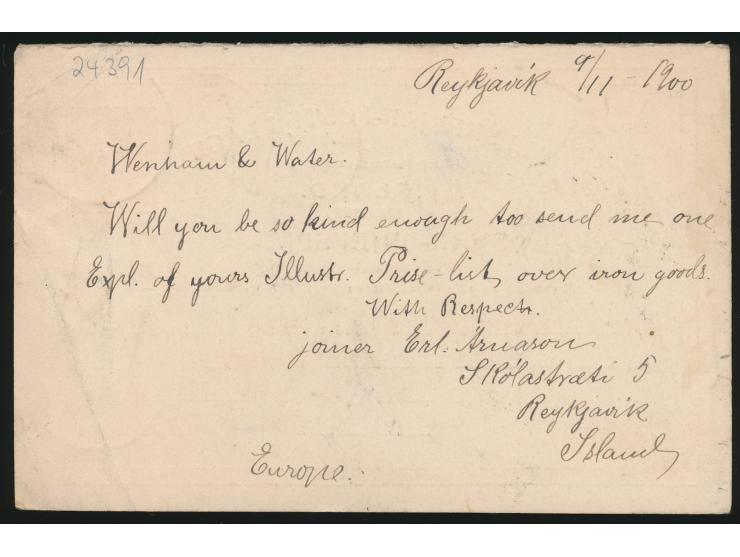 24391
Reykjavík 9/11 - 1900
Wenham & Water.
Will you be so kind enough too send me one
Expl. of yours Illustr. Prise-list, over iron goods.
With Respect.
joiner Erl. Árnason
Skólastræti 5
Reykjavík
Island
Europe.